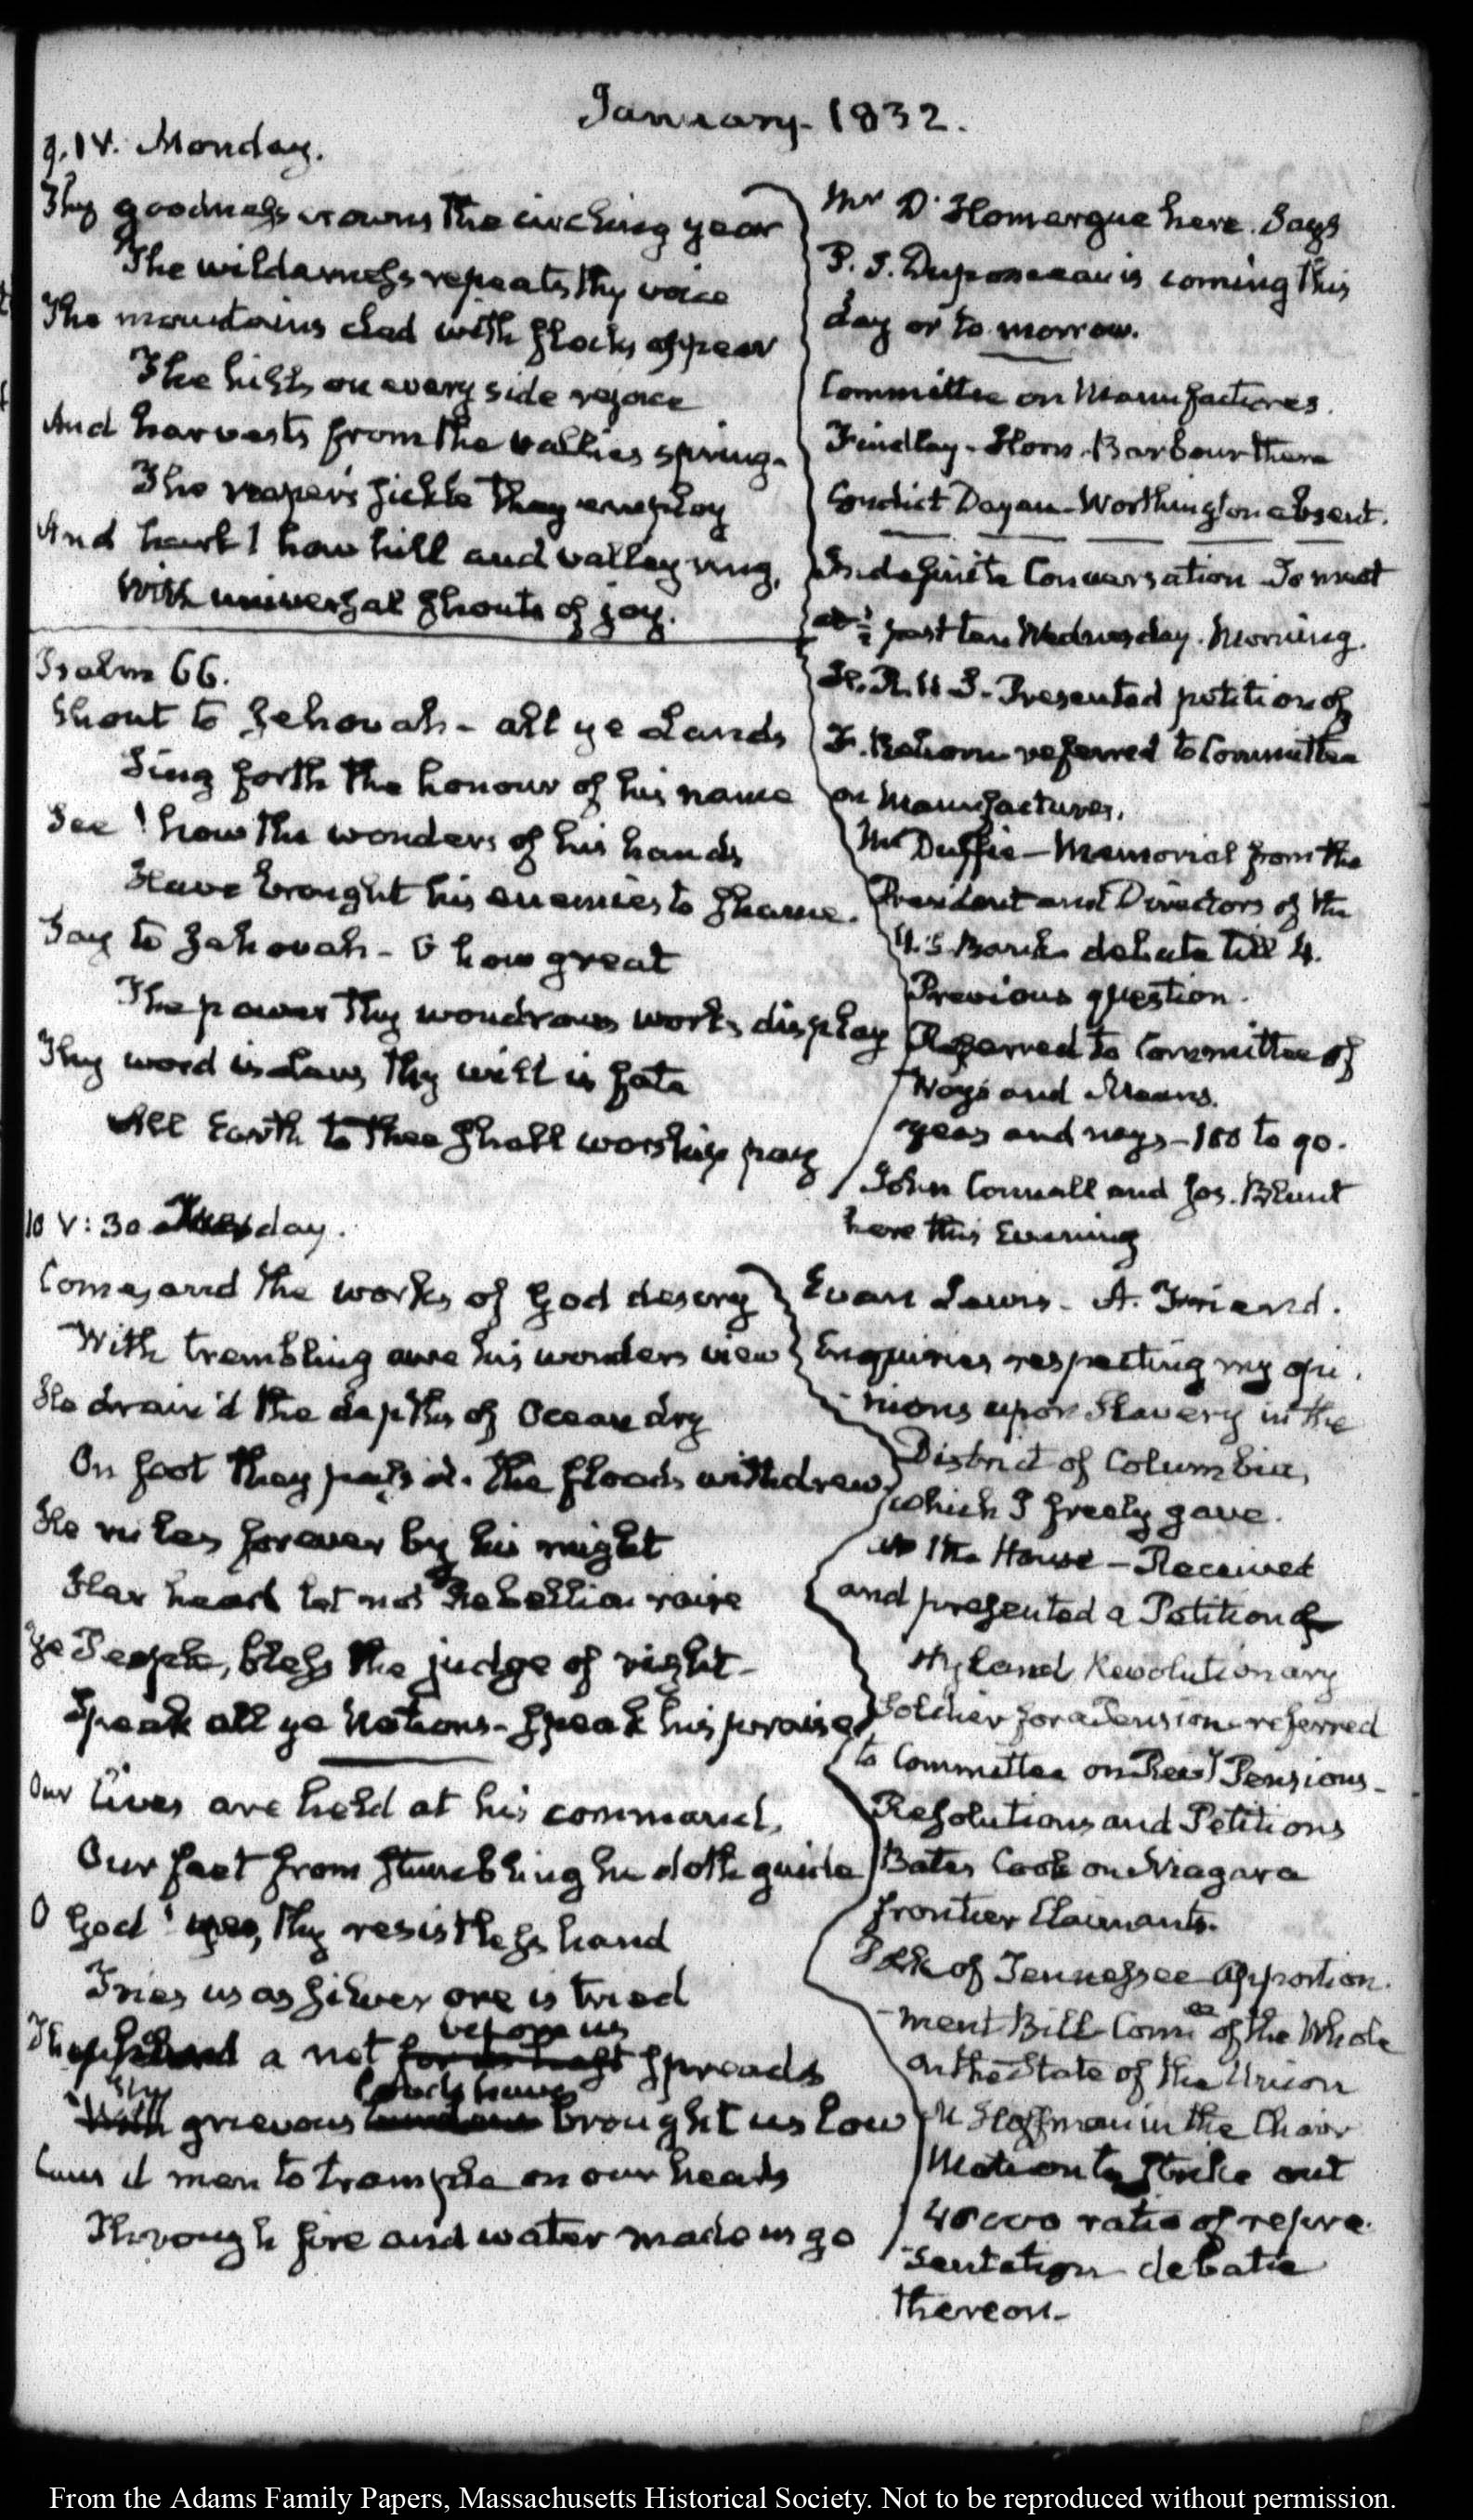 January. 1832.
9. IV. Monday.
Thy goodness crowns the circling year
The wilderness repeats thy voice
The mountains clad with flocks appear
The hills on every side rejoice
And harvests from the vallies spring.
The reaper's sickle they employ
And hark! how hill and valley ring,
With universal shouts of joy.
Psalm 66.
Shout to Jehovah - all ye Lands
Sing forth the honour of his name
See! how the wonders of his hands
Have brought his enemies to shame.
Say to Jehovah - O how great
The power thy wondrous works display
Thy word is Law, thy will is fate
All Earth to thee shall worship pay
Mr D'Homergue here. Says
P. S. Duponceau is coming this
day or to-morrow.
Committee on Manufactures.
Findlay - Horn. Barbour there
Condict Dayan - Worthington absent.
Indefinite Conversation To meet
at ½ past ten Wednesday. Morning.
H. R. U S. - Presented petition of
F. referred to Committee
on Manufactures.
McDuffie - Memorial from the
President and Directors of the
U.S. Bank debate till 4.
Previous question.
Referred to Committee of
Ways and Means.
yeas and nays - 100 to 90.
John Connell and Jos. Blunt
here this Evening
10 V: 30 Tuesday.
Come, and the works of God descry
With trembling awe his wonders view
He drain'd the depths of Ocean dry
On foot they pass'd. the floods withdrew.
He rules forever by his might
Her head let not Rebellion raise
Ye People, bless the judge of right -
Speak all ye Nations - speak his praise
Our lives are held at his command,
Our feet from stumbling he doth guide
O God! yes, thy resistless hand
Tries us as silver ore is tried
before us
Thy hand a net for us hast spreads
Thy loads have
With grievous burdens brought us low
Caus'd men to trample on our heads
Through fire and water made us go
Evan Lewis - A. Friend.
Enquiries respecting my opi-
nions upon Slavery in the
District of Columbia,
which I freely gave.
at the House - Received
and presented a Petition of
Hyland Revolutionary
Soldier for a Pension - referred
to Committee on Revy Pensions -
Resolutions and Petitions
Bates Cook on Niagara
frontier Claimants.
Polk of Tennessee Apportion-
ment Bill Comee of the Whole
on the State of the Union
M Hoffman in the Chair
Motion to strike out
48000 ratio of repre-
sentation debate
thereon -
From the Adams Family Papers, Massachusetts Historical Society. Not to be reproduced without permission.